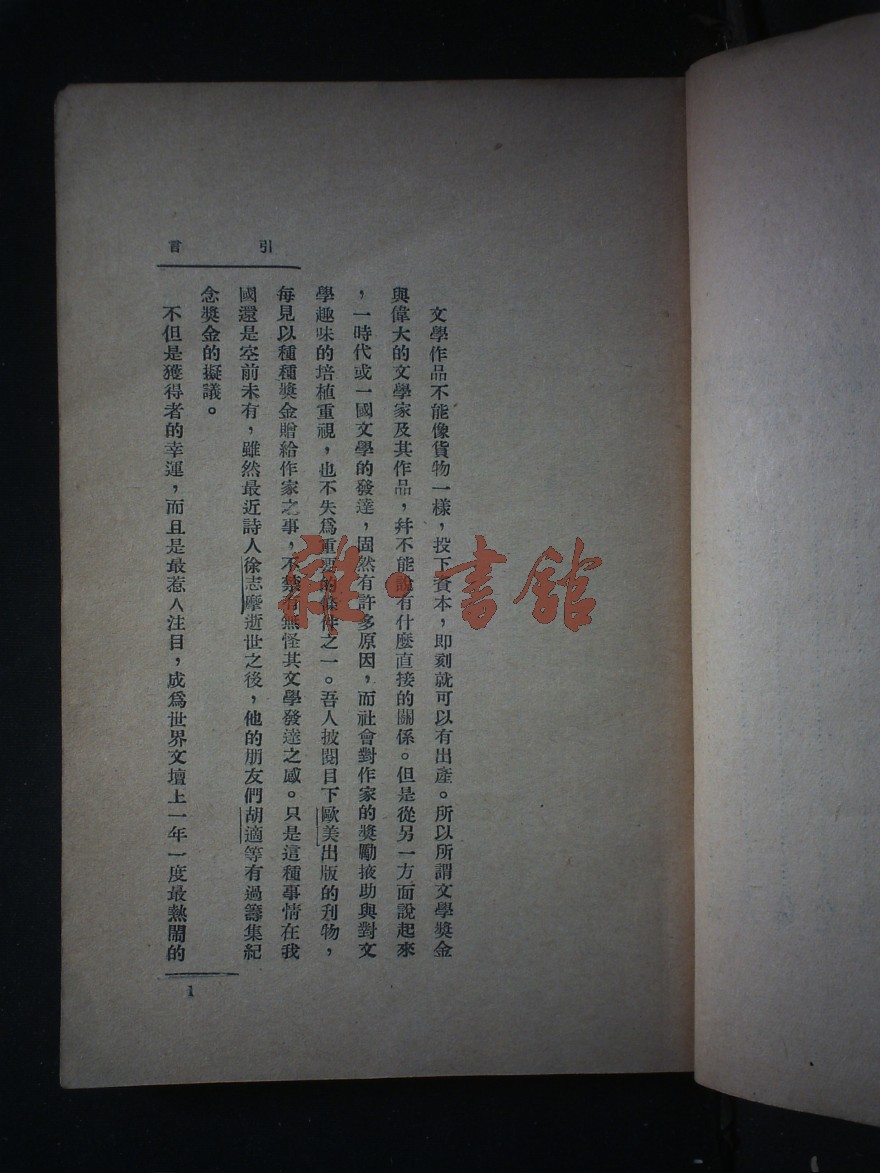 引言
文學作品不能像貨物一樣，投下資本，即刻就可以有出產。所以所謂文學獎金
與偉大的文學家及其作品，幷不能說有什麼直接的關係。但是從另一方面說起來
，一時代或一國文學的發達，固然有許多原因，而社會對作家的獎勵掖助與對文
學趣味的培植重視，也不失爲重要的條件之一。吾人披閱目下歐美出版的刋物，
每見以種種獎金贈給作家之事，不禁有無怪其文學發達之感。只是這種事情在我
國還是空前未有，雖然最近詩人徐志摩逝世之後，他的朋友們胡適等有過籌集紀
念獎金的擬議。
不但是獲得者的幸運，而且是最惹人注目，成爲世界文壇上一年一度最熱鬧的
1
雜·書館